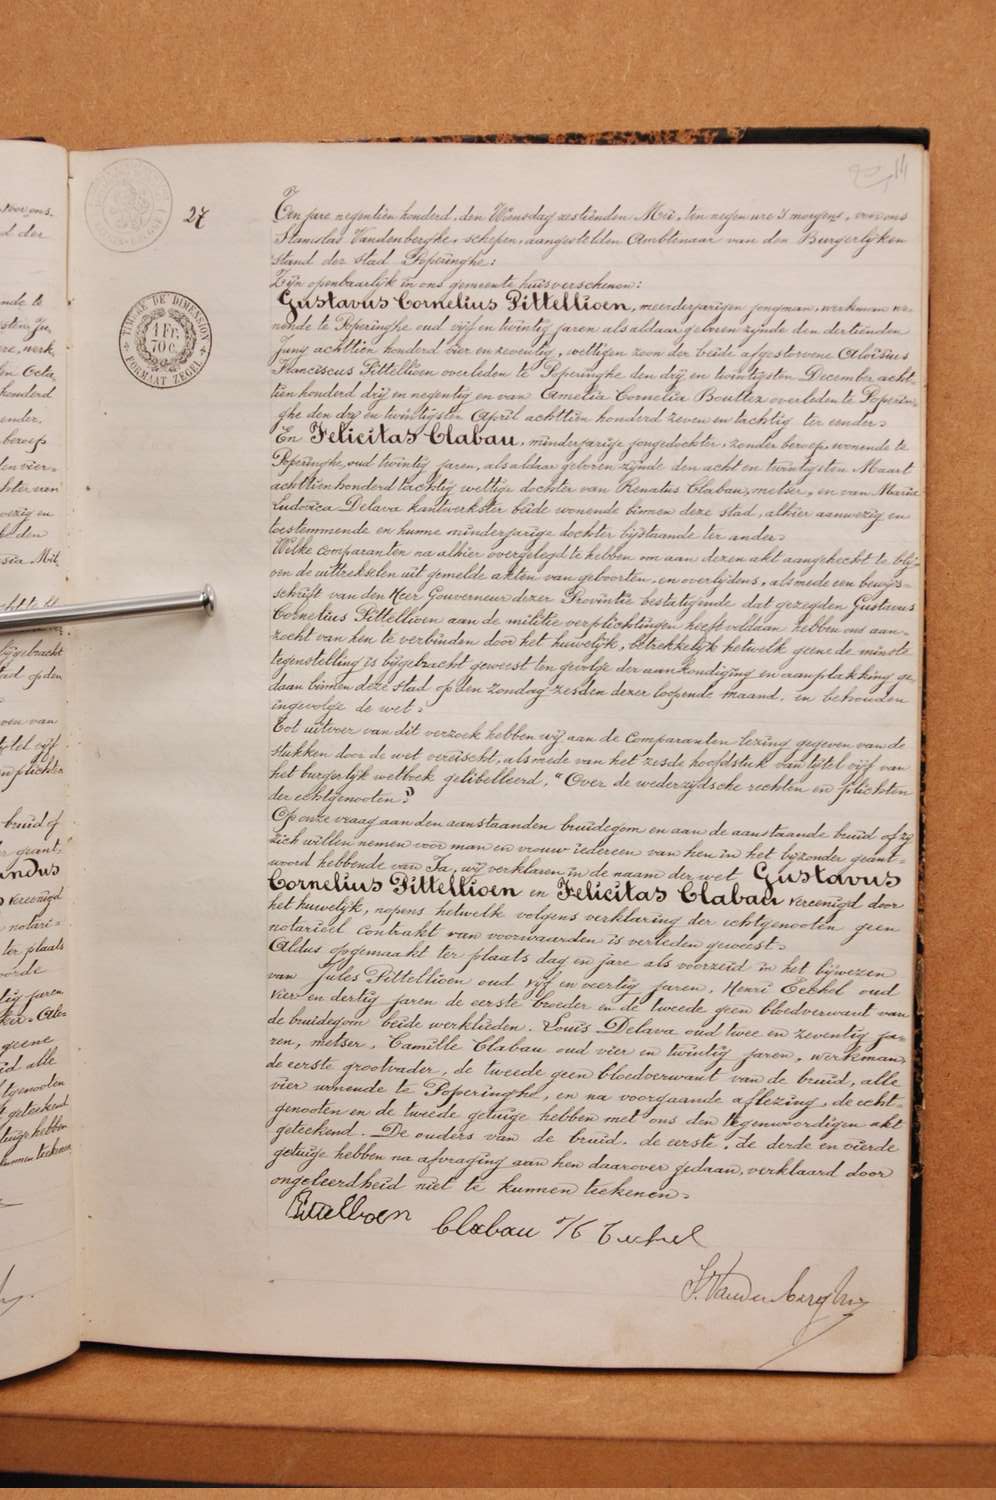 27
14
TIMBRE DE DIMENSION
1 FR.
70 C.
FORMAAT ZEGEL
Ten jare negentien honderd, den Wonsdag zestienden Mei, ten negen ure 's morgens, voor ons
Stanislas Vandenberghe, schepen, aangestelden Ambtenaar van den Burgerlijken
stand der stad Poperinghe:
Zijn openbaarlijk in ons gemeente huis verschenen:
Gustavus Cornelius Pittellioen, meerderjarigen jongman, werkman wo-
nende te Poperinghe oud vijf en twintig jaren als aldaar geboren zijnde den dertienden
Juny achttien honderd vier en zeventig, wettigen zoon der beide afgestorvene Aloisius
Franciscus Pittellioen overleden te Poperinghe den drij en twintigsten December acht-
tien honderd drij en negentig en van Amelia Cornelia Bouttez overleden te Poperin-
ghe den dry en twintigsten April achttien honderd zeven en tachtig ter eender.
En Felicitas Clabau, minderjarige jongedochter, zonder beroep, wonende te
Poperinghe, oud twintig jaren, als aldaar geboren zijnde den acht en twintigsten Maart
achttien honderd tachtig wettige dochter van Renatus Clabau, metser, en van Maria
Ludovica Delava kantwerkster beide wonende binnen deze stad, alhier aanwezig en
toestemmende en hunne minderjarige dochter bijstaande ter ander.
Welke comparanten na alhier overgelegd te hebben om aan dezen akt aangehecht te blij-
ven de uittrekselen uit gemelde akten van geboorten, en overlijdens, alsmede een bewijs-
schrift van den Heer Gouverneur dezer Provintie bestatigende dat gezegden Gustavus
Cornelius Pittellioen aan de militie verplichtingen heeft voldaan, hebben ons aan-
zocht van hen te verbinden door het huwelijk, betrekkelijk hetwelk geene de minste
tegenstelling is bijgebracht geweest ten gevolge der aankondiging en aanplakking ge-
daan binnen deze stad op den zondag zesden dezer loopende maand, en behouden
ingevolge de wet.
Tot uitvoer van dit verzoek hebben wij aan de Comparanten lezing gegeven van de
stukken door de wet vereischt, alsmede van het zesde hoofdstuk van tijtel vijf van
het burgerlijk wetboek gelibelleerd, "Over de wederzijdsche rechten en plichten
der echtgenooten."
Op onze vraag aan den aanstaanden bruidegom en aan de aanstaande bruid of zij
zich willen nemen voor man en vrouw iedereen van hen in het bijzonder geant-
woord hebbende van Ja, wij verklaren in de naam der wet Gustavus
Cornelius Pittellioen en Felicitas Clabau vereenigd door
het huwelijk, nopens hetwelk volgens verklaring der echtgenooten geen
notarieel contrakt van voorwaarden is verleden geweest.
Aldus opgemaakt ter plaats dag en jare als voorzeid in het bijwezen
van Jules Pittellioen oud vijf en veertig jaren, Henri Teckel oud
vier en dertig jaren de eerste broeder en de tweede geen bloedverwant van
de bruidegom beide werklieden. Louis Delava oud twee en zeventig ja-
ren, metser, Camille Clabau oud vier en twintig jaren, werkman,
de eerste grootvader, de tweede geen bloedverwant van de bruid, alle
vier wonende te Poperinghe, en na voorgaande aflezing, de echt-
genooten en de tweede getuige hebben met ons den tegenwoordigen akt
geteekend. De ouders van de bruid, de eerste, de derde en vierde
getuige hebben na afvraging aan hen daarover gedaan, verklaard door
ongeleerdheid niet te kunnen teekenen.
Pittellioen Clabau
S. Vandenberghe